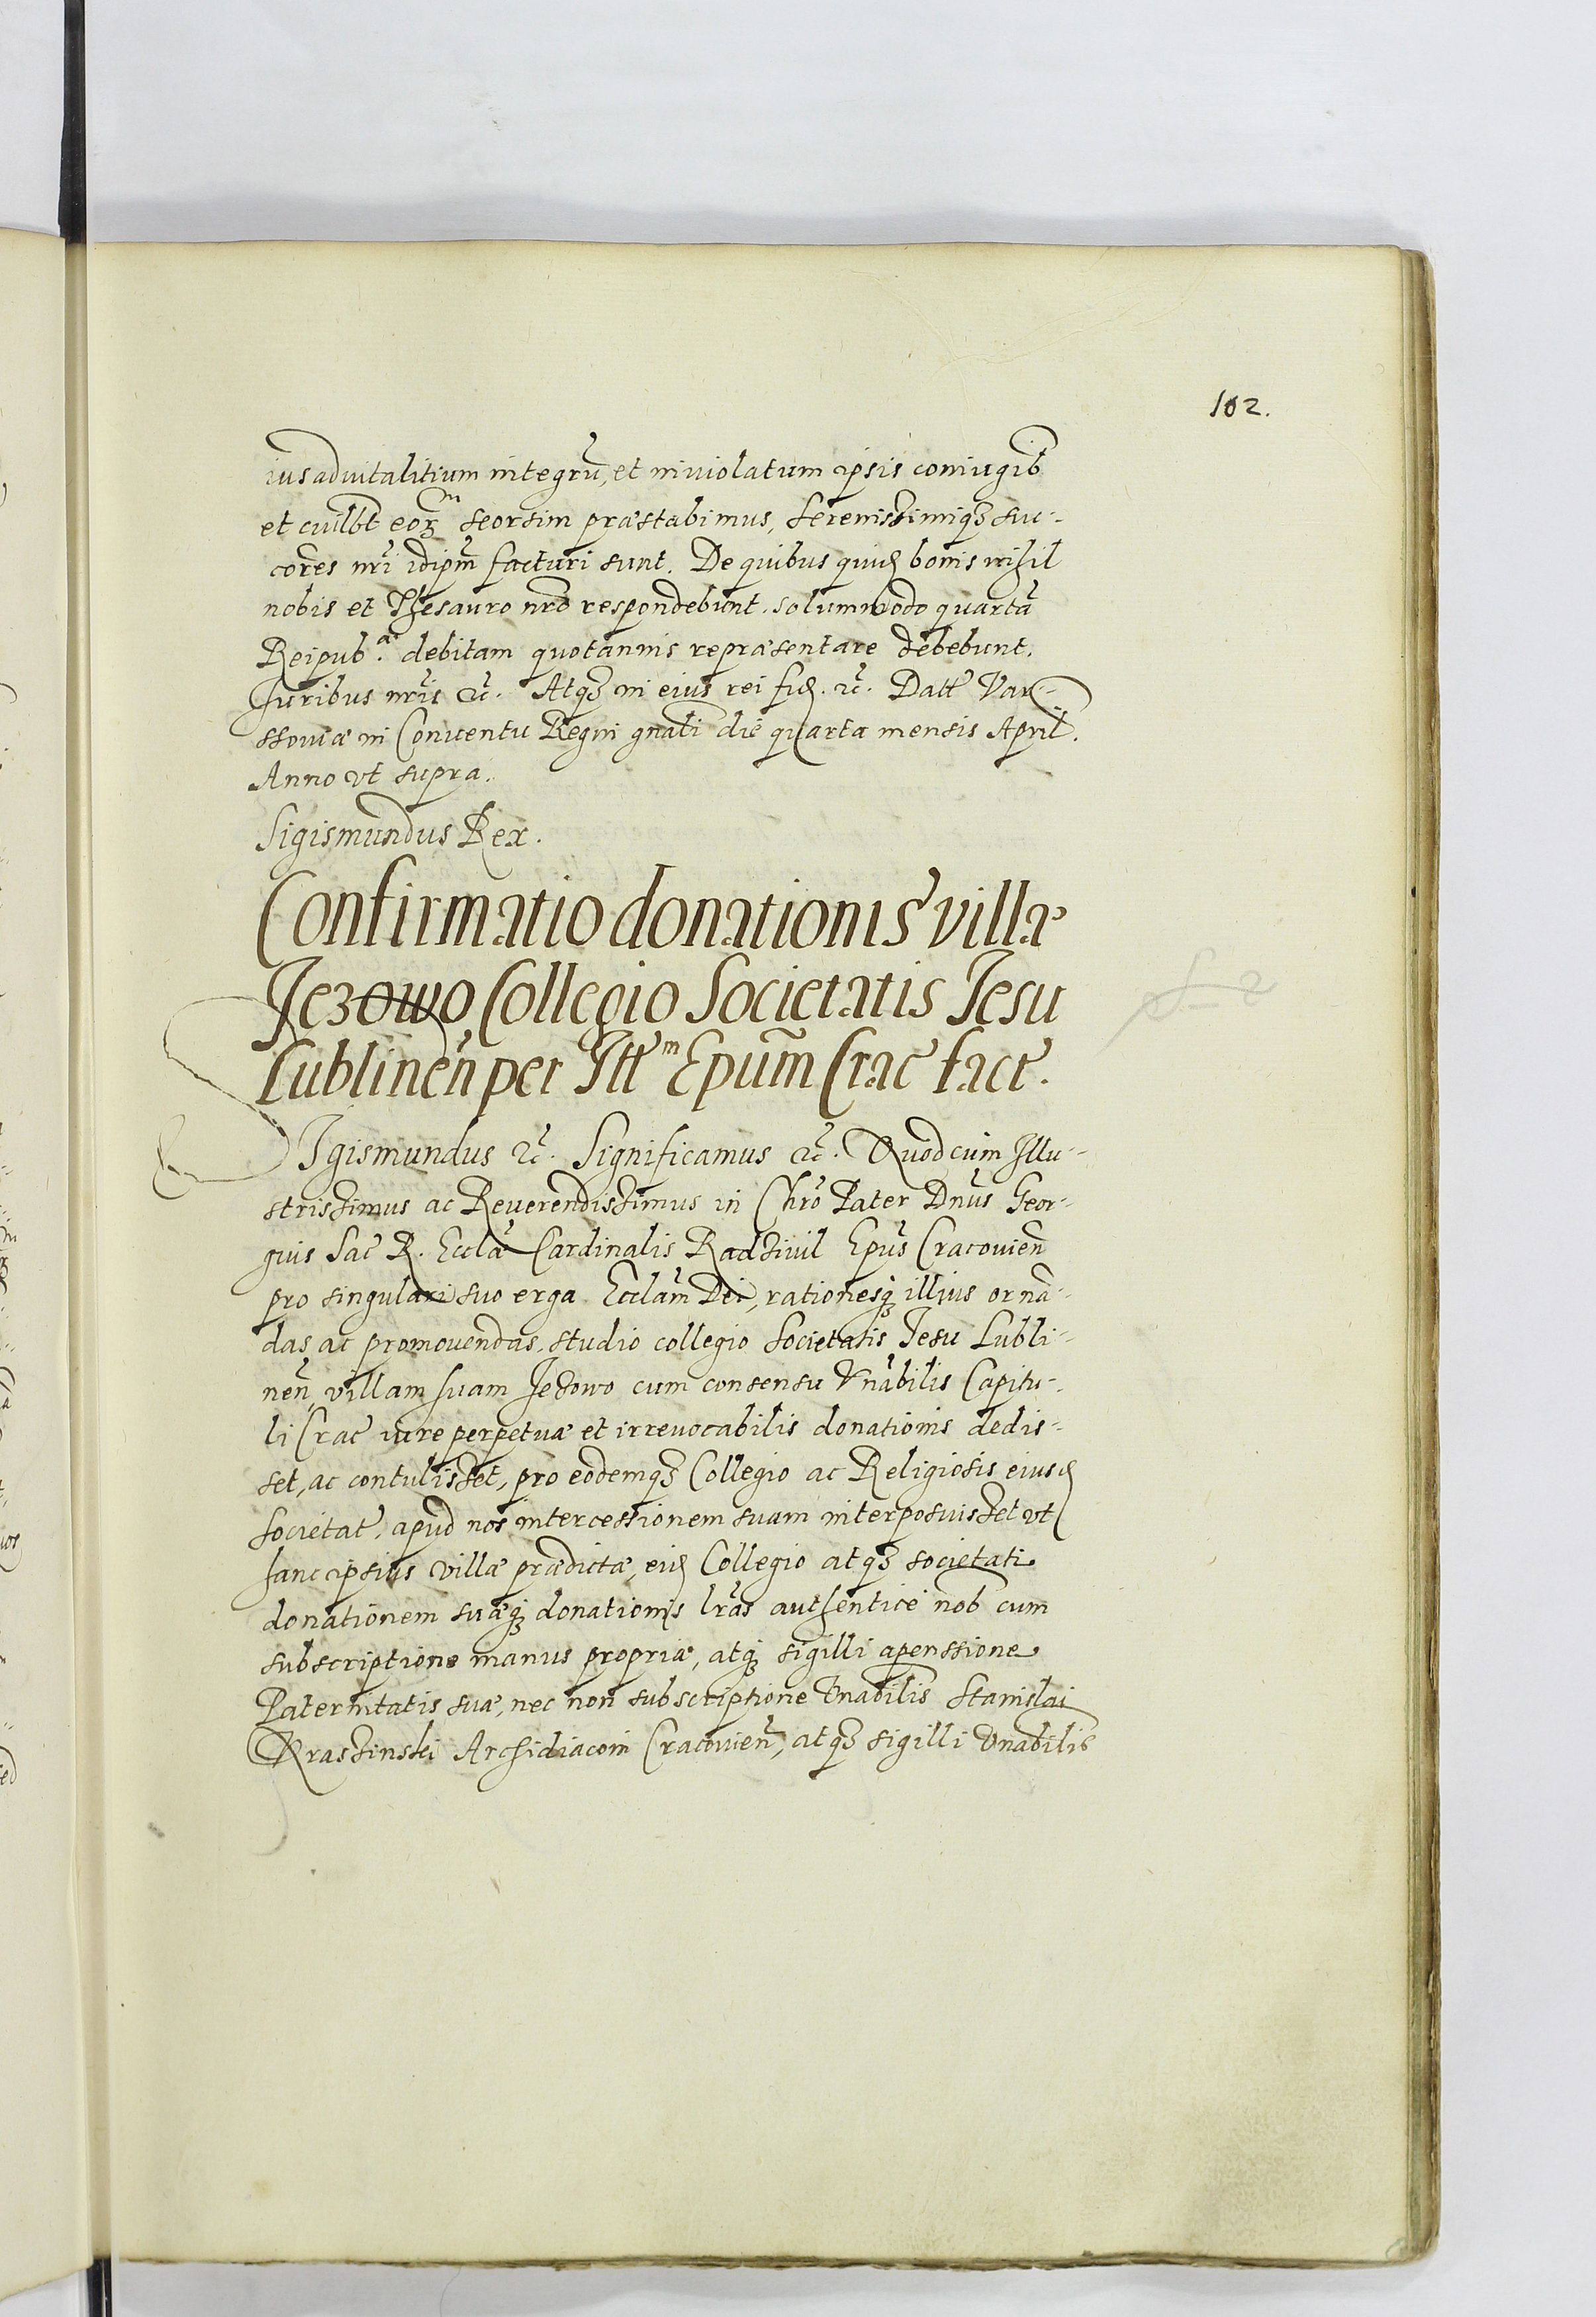 102.
ius advitalitium integrū, et inviolatum ipsis coniugib
et cuilbt eorꝫ seorsim præstabimus, Serenissimiqꝫ suc-
cores nri idipm facturi sunt. De quibus quid bonis nihil
nobis et Thesauro nro respondebunt. solummodo quartā
Reipub.ᵃᵉ debitam quotannis repræsentare debebunt.
Juribus nris &c. Atqꝫ in eius rei fid. &c. Datt Var-
ssoviæ in Conventu Regni gnali die quarta mensis April.
Anno vt supra.
Sigismundus Rex.
Confirmatio donationis villæ
Jezowo Collegio Societatis Jesu
Lublineñ per Illᵐ Epum̃ Crac fact.
Sigismundus &c. Significamus &c. Quod cum Illu-
strissimus ac Reverendissimus in Chro Pater Dnus Geor-
gius Sac R. Ecclæ Cardinalis Radzivil Epus Cracovien
pro singulari suo erga Ecclam Dei, rationesqꝫ illius ornā-
das ac promovendas, studio collegio Societatis Jesu Lubli-
neñ, villam suam Jezowo cum consensu Vnabilis Capitu-
li Crac iure perpetuæ et irrevocabilis donationis dedis-
set, ac contulisset, pro eodemqꝫ Collegio ac Religiosis eiusd
societat, apud nos intercessionem suam interposuisset vt
hanc ipsius villæ prædictæ, eid Collegio atqꝫ societati
donationem suæqꝫ donationis lras authentice nob cum
subscriptione manus propriæ, atqꝫ sigilli apenssione
Paternitatis suæ, nec non subscriptione Vnabilis Stanislai
Kraszinski Archidiaconi Cracovien, atqꝫ sigilli Vnabilis